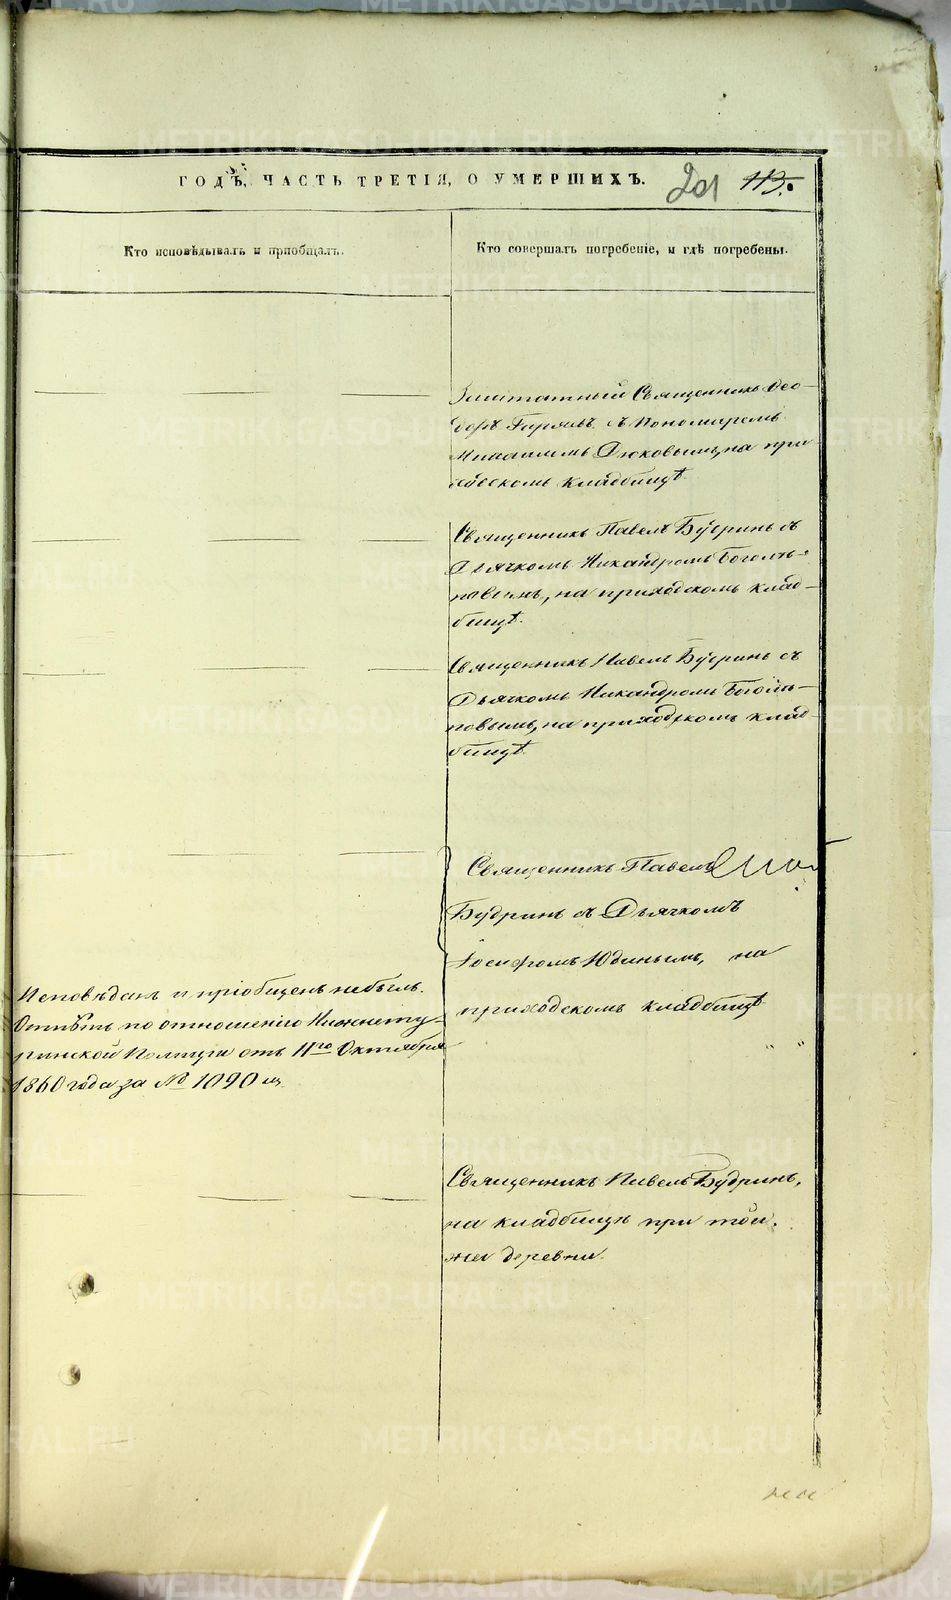 ГОДЪ, ЧАСТЬ ТРЕТІЯ, О УМЕРШИХЪ. 201 113.
Кто исповѣдывалъ и пріобщалъ.
Кто совершалъ погребеніе, и гдѣ погребены.
Заштатный Священникъ Ѳео-
доръ с Пономаремъ
Михаиломъ Дюковымъ, на при
ходскомъ кладбищѣ.
Священникъ Павелъ Будринъ съ
Дьячкомъ Никандромъ Боголѣ-
повымъ, на приходскомъ клад-
бищѣ.
Священникъ Павелъ Будринъ съ
Дьячкомъ Никандромъ Боголѣ-
повымъ, на приходскомъ клад-
бищѣ
Священникъ Павелъ
Будринъ съ Дьячкомъ
Іосифомъ Юдинымъ, на
приходскомъ кладбищѣ
Исповѣданъ и пріобщенъ небылъ.
Отпѣтъ по отношенію Нижнету-
ринской Полиціи отъ 11го Октября
1860 года за № 1090 мъ
Священникъ Павелъ Будринъ,
на кладбищѣ при той
же деревни.
METRIKI.GASO-URAL.RU